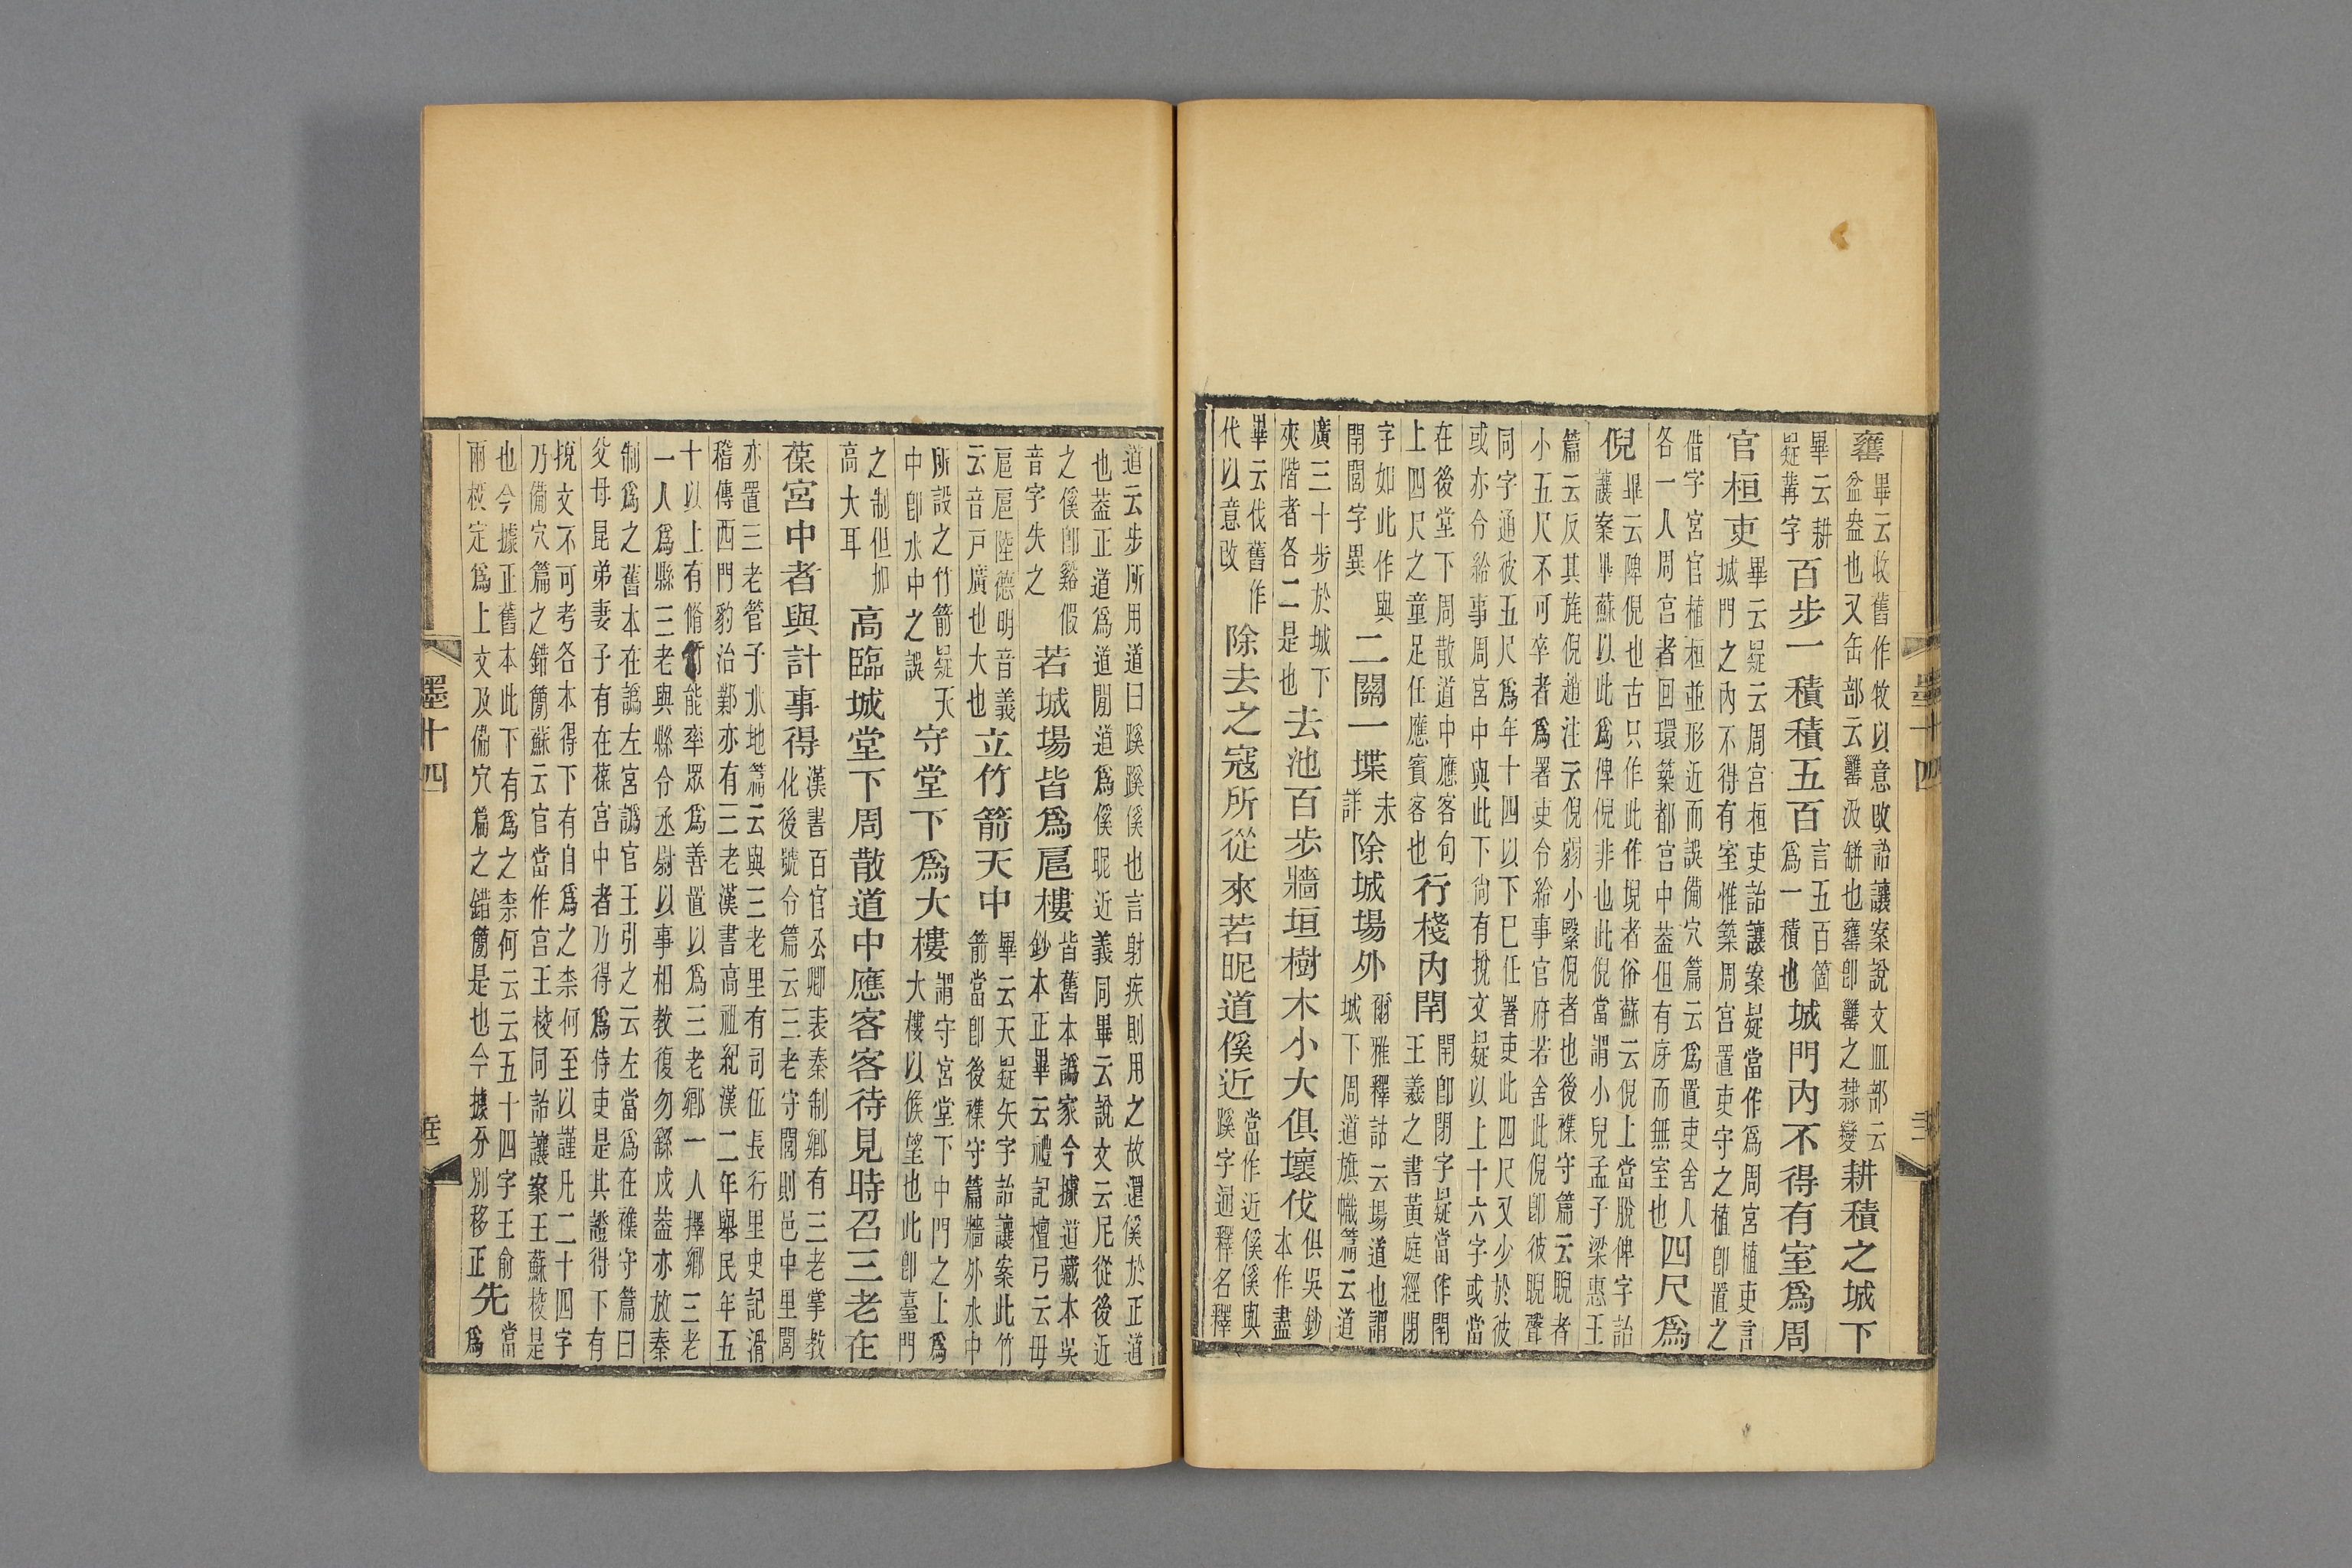 罋畢云收舊作牧以意改詒讓案說文皿部云
盆盎也又缶部云罋汲缾也罋卽罋之隸變耕積之城下
畢云耕
疑冓字百步一積積五百言五百箇
爲一積也城門內不得有室爲周
官桓吏畢云疑云周宮桓吏詒讓案疑當作爲周宮植吏言
城門之內不得有室惟築周宮置吏守之植卽置之
借字宮官植桓並形近而誤備穴篇云爲置吏舍人
各一人周宮者回環築都宮中葢但有房而無室也四尺爲
倪畢云陴倪也古只作此作堄者俗蘇云倪上當脫俾字詒
讓案畢蘇以此爲俾倪非也此倪當謂小兒孟子梁惠王
篇云反其旄倪趙注云倪弱小繄倪者也後襍守篇云睨者
小五尺不可卒者爲署吏令給事官府若舍此倪卽彼睨聲
同字通彼五尺爲年十四以下巳任署吏此四尺又少於彼
或亦令給事周宮中與此下尙有挩文疑以上十六字或當
在後堂下周散道中應客句
上四尺之童足任應賓客也行棧內閈閈卽閉字疑當作閈
王羲之書黃庭經閉
字如此作與
閈閎字異二關一堞未
詳除城場外爾雅釋詁云場道也謂
城下周道旗幟篇云道
廣三十步於城下
夾階者各二是也去池百步牆垣樹木小大俱壞伐俱吳鈔
本作盡
畢云伐舊作
代以意改除去之寇所從來若昵道傒近當作近傒傒與
蹊字通釋名釋
道云步所用道曰蹊蹊傒也言射疾則用之故還傒於正道
也葢正道爲道閒道爲傒昵近義同畢云說文云尼從後近
之傒卽谿假
音字失之若城場皆爲扈樓皆舊本譌家今據道藏本吳
鈔本正畢云禮記檀弓云毋
扈扈陸德明音義
云音戸廣也大也立竹箭天中畢云天疑矢字詒讓案此竹
箭當卽後襍守篇牆外水中
所設之竹箭疑天
中卽水中之誤守堂下爲大樓謂守宮堂下中門之上爲
大樓以候望也此卽臺門
之制但加
高大耳高臨城堂下周散道中應客客待見時召三老在
葆宮中者與計事得漢書百官公卿表秦制鄉有三老掌教
化後號令篇云三老守閭則邑中里閭
亦置三老管子水地篇云與三老里有司伍長行里史記滑
稽傳西門豹治鄴亦有三老漢書高祖紀漢二年舉民年五
十以上有脩行能率眾爲善置以爲三老鄉一人擇鄉三老
一人爲縣三老與縣令丞尉以事相教復勿繇戍葢亦放秦
制爲之舊本在譌左宮譌官王引之云左當爲在襍守篇曰
父母昆弟妻子有在葆宮中者乃得爲侍吏是其證得下有
挩文不可考各本得下有自爲之柰何至以謹凡二十四字
乃備穴篇之錯簡蘇云官當作宮王梭同詒讓案王蘇梭是
也今據正舊本此下有爲之柰何云云五十四字王俞
兩梭定爲上文及備穴篇之錯簡是也今據分別移正先當
爲
墨十四
墨十四